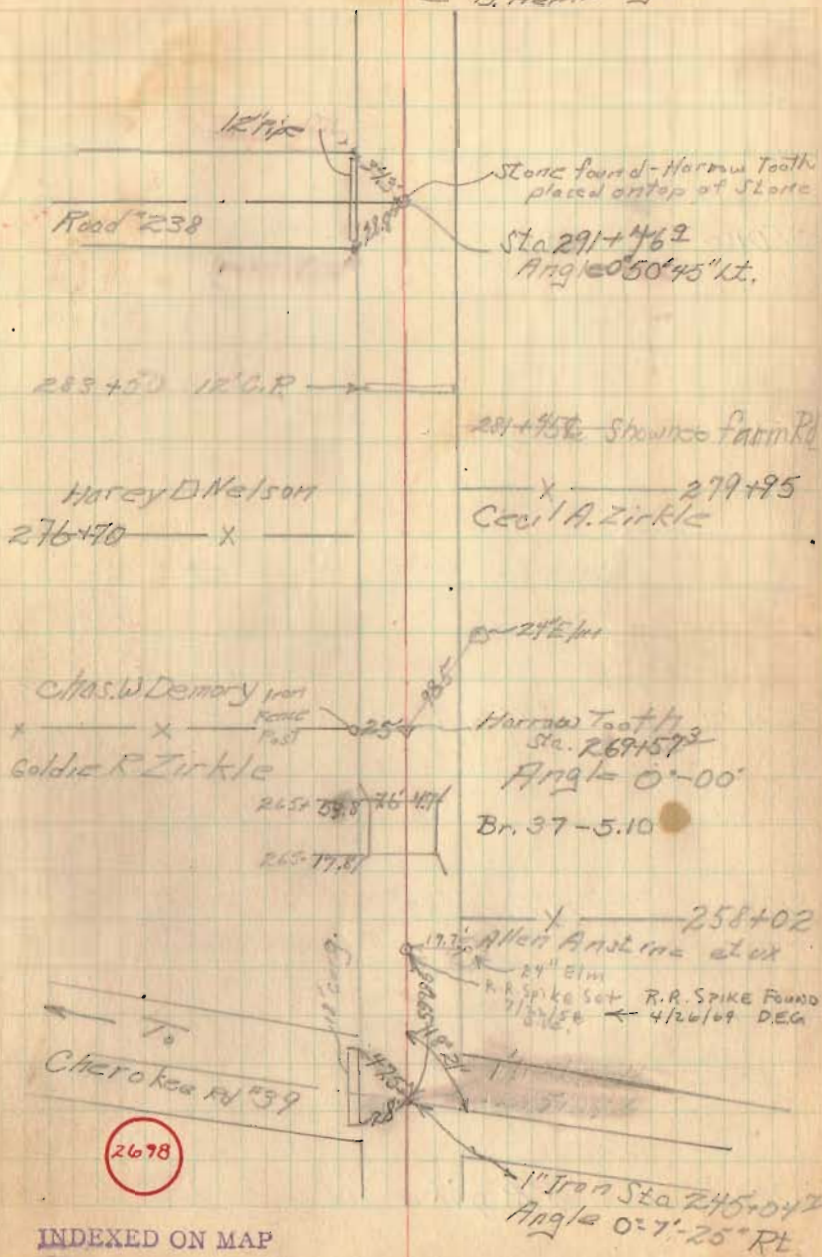 12" Pipe
34.3'
22.8'
Road #238
Stone found - Harrow Tooth
placed on top of Stone
Sta 291+46.9
Angle 0°50'45" Lt.
283+50 12" C.P.
281+45 ℄ Shownee farm Rd
Harey D Nelson
276+70 X
X 279+95
Cecil A. Zirkle
24" Elm
Chas. W Demory
Iron
Fence
Post
25'
x X
Harrow Tooth
Sta. 269+57.3
Goldie R Zirkle
Angle 0°-00'
265+
Br. 37-5.10
265+17.8
X 258+02
19.7'
Allen Anstine et ux
24" Elm
R.R. Spike Set
R.R. SPIKE FOUND
4/26/69 D.E.G
To
Cherokee Rd #39
47.5'
28'
2698
1" Iron Sta 245+04
Angle 0°-7'-25" Rt
INDEXED ON MAP